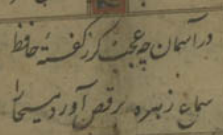 در آسمان چه عجب گر ز گفتهٔ حافظ
سماع زهره برقص آورد مسیحا را